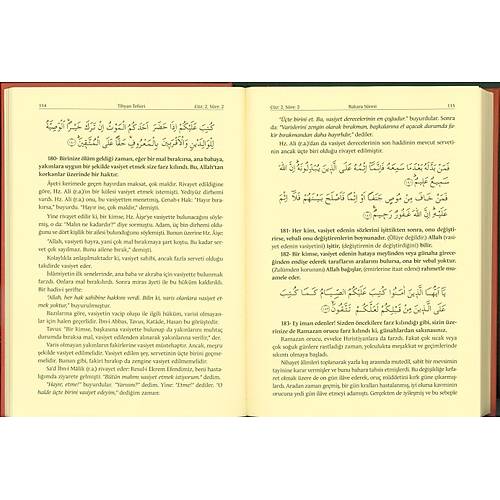 114 Tibyan Tefsiri Cüz: 2, Sûre: 2
كُتِبَ عَلَيْكُمْ إِذَا حَضَرَ أَحَدَكُمُ الْمَوْتُ إِنْ تَرَكَ خَيْرًا الْوَصِيَّةُ
لِلْوَالِدَيْنِ وَالْأَقْرَبِينَ بِالْمَعْرُوفِ حَقًّا عَلَى الْمُتَّقِينَ
180- Birinize ölüm geldiği zaman, eğer bir mal bırakırsa, ana babaya,
yakınlara uygun bir şekilde vasiyet etmek size farz kılındı. Bu, Allah'tan
korkanlar üzerinde bir haktır.
Âyeti kerimede geçen hayırdan maksat, çok maldır. Rivayet edildiğine
göre, Hz. Ali (r.a)'ın bir kölesi vasiyet etmek istemişti. Yediyüz dirhemi
vardı. Hz. Ali (r.a) onu, bu vasiyetten menetmiş, Cenab-ı Hak: "Hayır
bırakırsa," buyurdu. "Hayır ise, çok maldır", demişti.
Yine rivayet edilir ki, bir kimse, Hz. Âişe'ye vasiyette bulunacağını söyle-
miş, o da: "Malın ne kadardır?" diye sormuştu. Adam, üç bin dirhemi oldu-
ğunu söylemişti. Bunun üzerine Hz. Âişe:
"Allah, vasiyeti hayra, yani çok mal bırakmaya şart koştu. Bu kadar ser-
vet çok sayılmaz. Bunu ailene bırak," demişti.
Kolaylıkla anlaşılmaktadır ki, vasiyet sahibi, ancak fazla serveti olduğu
takdirde vasiyet eder.
İslâmiyetin ilk senelerinde, ana baba ve akraba için vasiyette bulunmak
farzdı. Onlara mal bırakılırdı. Sonra miras âyeti ile bu hüküm kaldırıldı.
Bir hadîsi şerifte:
"Allah, her hak sahibine hakkını verdi. Bilin ki, varis olanlara vasiyet et-
mek yoktur," buyurulmuştur.
Bazılarına göre, vasiyetin vacip oluşu ile ilgili hüküm, varisi olmayan-
lar için halen geçerlidir. İbn-i Abbas, Tavus, Katâde, Hasan bu görüştedir.
Tavus: "Bir kimse, başkasına vasiyette bulunup da yakınlarını muhtaç
durumda bırakırsa o mal, vasiyet edilenden alınarak yakınlarına verilir," der.
Varisi olmayan yakınların hakkında vasiyet müstehaptır. Ancak, malın
üçte birini geçmemelidir. Vasiyet edilen şey, servetinin üçte birini geçme-
melidir. Bunun gibi, fakiri bırakıp zengine vasiyet edilmemelidir.
Sa'd İbn-i Mâlik (r.a) rivayet eder: Resul-i Ekrem Efendimiz, beni hasta-
lığımda ziyarete gelmişti. "Bütün malımı vasiyet etmek istiyorum." dedim.
"Hayır, etme!" buyurdular. "Yarısını?" dedim. Yine: "Etme!" dediler. "O
halde üçte birini vasiyet edeyim," dediğim zaman:
Cüz: 2, Sûre: 2 Bakara Sûresi 115
"Üçte birini et. Bu, vasiyet derecelerinin en çoğudur." buyurdular. Sonra
da: "Varislerini zengin olarak bırakman, başkalarına el açacak durumda fa-
kir bırakmandan daha hayırlıdır," dediler.
Hz. Ali (r.a)'dan da vasiyet derecelerinin son haddinin mevcut serveti-
nin ancak üçte biri olduğu rivayet edilmiştir.
فَمَنْ بَدَّلَهُ بَعْدَمَا سَمِعَهُ فَإِنَّمَا إِثْمُهُ عَلَى الَّذِينَ يُبَدِّلُونَهُ إِنَّ اللَّهَ
سَمِيعٌ عَلِيمٌ
فَمَنْ خَافَ مِنْ مُوصٍ جَنَفًا أَوْ إِثْمًا فَأَصْلَحَ بَيْنَهُمْ فَلَا إِثْمَ
عَلَيْهِ إِنَّ اللَّهَ غَفُورٌ رَحِيمٌ
181- Her kim, vasiyet edenin sözlerini işittikten sonra, onu değişti-
rirse, vebali onu değiştirenin boynunadır. (Ölüye değildir) Allah (vasi-
yet edenin vasiyetini) işitir, (değiştirenin de değiştirdiğini) bilir.
182- Bir kimse, vasiyet edenin hataya meylinden veya günaha girece-
ğinden endişe ederek tarafların aralarını bulursa, ona bir vebal yoktur.
(Zulümden korunanı) Allah bağışlar, (emirlerine itaat edeni) rahmetle mu-
amele eder.
يَا أَيُّهَا الَّذِينَ آمَنُوا كُتِبَ عَلَيْكُمُ الصِّيَامُ كَمَا كُتِبَ
عَلَى الَّذِينَ مِنْ قَبْلِكُمْ لَعَلَّكُمْ تَتَّقُونَ
183- Ey iman edenler! Sizden öncekilere farz kılındığı gibi, sizin üzeri-
nize de Ramazan orucu farz kılındı ki, günahlardan sakınasınız.
Ramazan orucu, evvelce Hıristiyanlara da farzdı. Fakat çok sıcak veya
çok soğuk günlere rastladığı zaman, yolculukta meşakkat ve geçimlerinde
sıkıntı olmaya başladı.
Nihayet âlimleri toplanarak yazla kış arasında mutedil, sabit bir mevsimi
tayinine karar vermişler ve bunu bahara tahsis etmişlerdi. Bu değişikliğe kefa-
ret olmak üzere de on gün ilâve ederek, oruç müddetini kırk güne çıkarmış-
lardı. Aradan zaman geçmiş, bir gün kralları hastalanmış, iyi olursa kavminin
orucuna yedi gün daha ilâve etmeyi adamıştı. Gerçekten de iyileşmiş ve bu sebeple